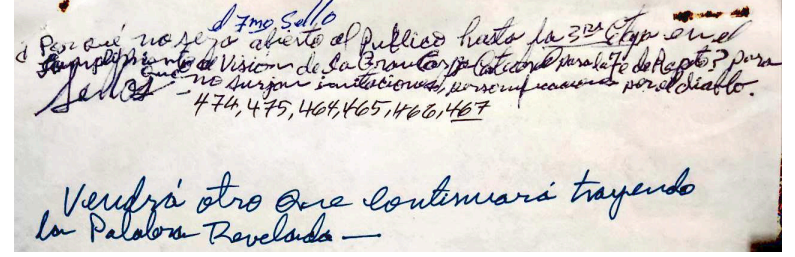 el 7mo Sello
¿Por qué no será abierto al publico hasta la 3ra Etapa en el
Cumplimiento de Visión de La Gran Carpa Catedral para la fe de Rapto? para
Sellos que no surjan imitaciones, personificaciones por el diablo.
474, 475, 464, 465, 466, 467
Vendrá otro que continuará trayendo
la Palabra Revelada —